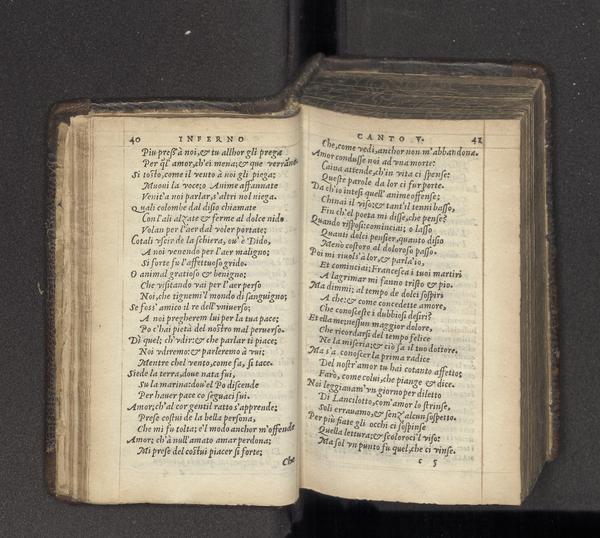 40 INFERNO
Piu press' à noi, & tu allhor gli prega
Per q̃l' amor, ch'ei mena; & que verrãno.
Si tosto, come il vento à noi gli piega;
Muoui la voce; o Anime affannate
Venit' a noi parlar, s'altri nol niega.
Quali colombe dal disio chiamate
Con l'ali alzate & ferme al dolce nido
Volan per l'aer dal voler portate;
Cotali vscir de la schiera, ou' è Dido,
A noi venendo per l'aer maligno;
Si forte fu l'affettuoso grido.
O animal gratioso & benigno;
Che visitando vai per l'aer perso
Noi, che tignemmo'l mondo di sanguigno;
Se foss' amico il re dell'vniuerso;
A noi pregherem lui per la tua pace;
Po c'hai pietà del nostro mal peruerso.
Di quel; ch'vdir: & che parlar ti piace;
Noi vdremo: & parleremo à vui;
Mentre chel vento, come fa, si tace.
Siede la terra, doue nata fui,
Su la marina: dou'el Po discende
Per hauer pace co seguaci sui.
Amor; ch'al cor gentil ratto s'apprende;
Prese costui de la bella persona,
Che mi fu tolta: e'l modo anchor m'offende
Amor; ch'à null'amato amar perdona;
Mi prese del costui piacer si forte;
Che
CANTO V. 41
Che, come vedi, anchor non m'abbandona.
Amor condusse noi ad vna morte:
Caina attende, ch'in vita ci spense:
Queste parole da lor ci fur porte.
Da ch'io intesi quell' anime offense;
Chinai il viso: & tant'il tenni basso,
Fin ch'el poeta mi disse, che pense?
Quando risposi: cominciai; o lasso
Quanti dolci pensier, quanto disio
Menò costoro al doloroso passo.
Poi mi riuols' à lor, & parla'io,
Et cominciai: Francesca i tuoi martiri
A lagrimar mi fanno tristo & pio.
Ma dimmi; al tempo de dolci sospiri
A che: & come concedette amore,
Che conosceste i dubbiosi desiri?
Et ella me; nessun maggior dolore,
Che ricordarsi del tempo felice
Ne la miseria; & ciò sa il tuo dottore.
Ma s'a conoscer la prima radice
Del nostr'amor tu hai cotanto affetto;
Farò, come colui, che piange & dice.
Noi leggiauam'vn giorno per diletto
Di Lancilotto, com'amor lo strinse,
Soli erauamo, & senz' alcun sospetto.
Per piu fiate gli occhi ci sospinse
Quella lettura; & scoloroci'l viso:
Ma sol vn punto fu quel, che ci vinse.
c 5